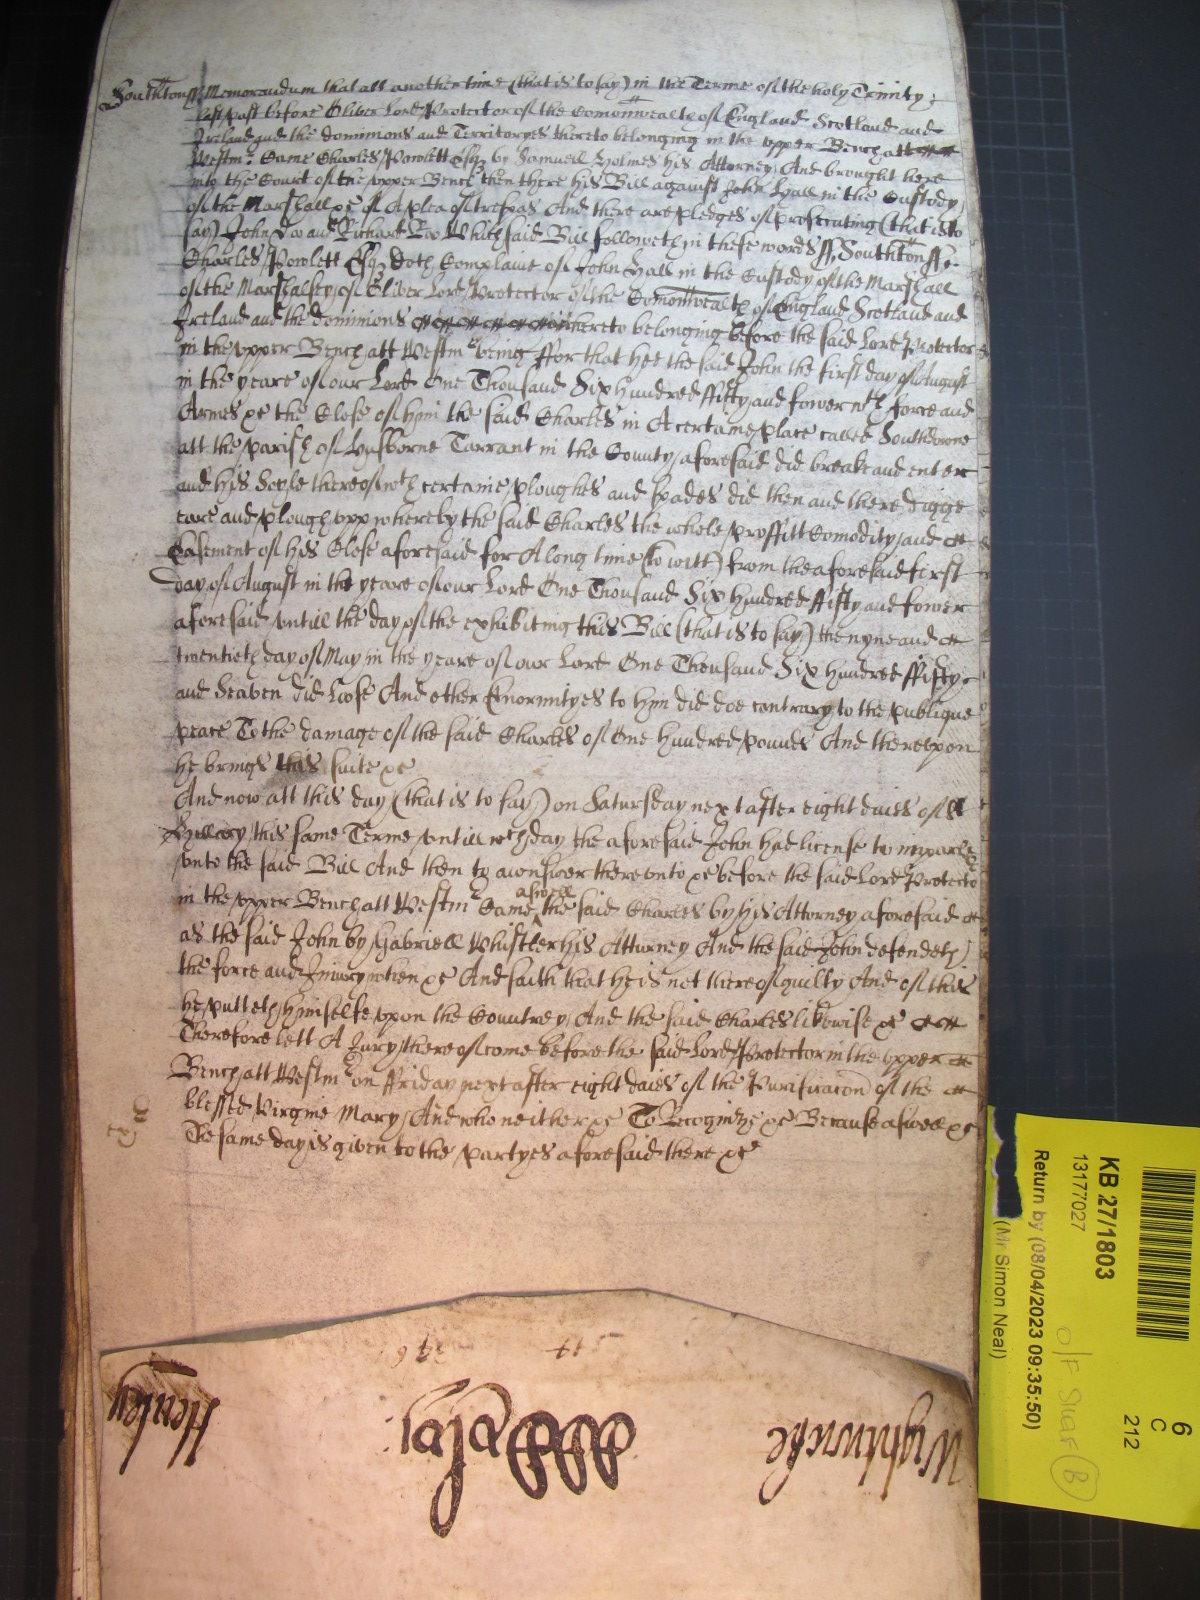 Southton ss Memorandum that att another time (that is to say) in the Terme of the holy Trinity
last past before Oliver Lord Protector of the Comonwealth of England Scotland and
Ireland and the dominions and Territoryes thereto belonging in the upper Bench att
Westmr Came Charles Powlett Esqr by Samuell Holmes his Attorney And brought here
into the Court of the upper Bench then there his Bill against John Hall in the Custody
of the Marshall &c of A plea of trespas And there are pledges of prosecuting (that is to
say) John Doe and Richard Roe Which said Bill followeth in these words ss Southton ss
Charles Powlett Esqr doth Complaine of John Hall in the Custody of the Marshall
of the Marshalsey of Oliver Lord Protector of the Comonwealth of England Scotland and
Ireland and the dominions thereto belonging before the said Lord Protector
in the upper Bench att Westmr being ffor that hee the said John the first day of August
in the yeare of our Lord One Thousand Six hundred ffifty and fower wth force and
Armes &c the Close of him the said Charles in A certaine place called Southborne
att the parish of Husborne Tarrant in the County aforesaid did breake and enter
and his Soyle thereof wth certaine ploughes and spades did then and there digge
teare and plough upp whereby the said Charles the whole proffitt Comodity and
Easement of his Close aforesaid for A long time (to witt) from the aforesaid first
day of August in the yeare of our Lord One Thousand Six hundred ffifty and fower
aforesaid untill the day of the exhibiting this Bill (that is to say) the nyne and
twentieth day of May in the yeare of our Lord One Thousand Six hundred ffifty
and Seaven did Loose And other Enormityes to him did doe contrary to the publique
peace To the damage of the said Charles of One hundred pounds And thereupon
he brings this suite &c
And now att this day (that is to say) on Saturday next after eight daies of St
Hillary this same Terme untill wch day the aforesaid John had license to imparle
unto the said Bill And then to answer thereunto &c before the said Lord Protector
in the upper Bench att Westmr Came aswell the said Charles by his Attorney aforesaid
as the said John by Gabriell Whistler his Attorney And the said John defendeth
the force and Iniury when &c And saith that he is not thereof guilty And of this
he putteth himselfe upon the Countrey And the said Charles likewise &c
Therefore lett A Jury thereof come before the said Lord Protector in the upper
Bench att Westmr on Friday next after eight daies of the Purificacon of the
blessed Virgine Mary And who neither &c To Recognize &c Because aswell &c
The same day is given to the partyes aforesaid there &c
Henley
Wightwicke
KB 27/1803
13177027
Return by (08/04/2023 09:35:50)
(Mr Simon Neal)
6
C
212
B